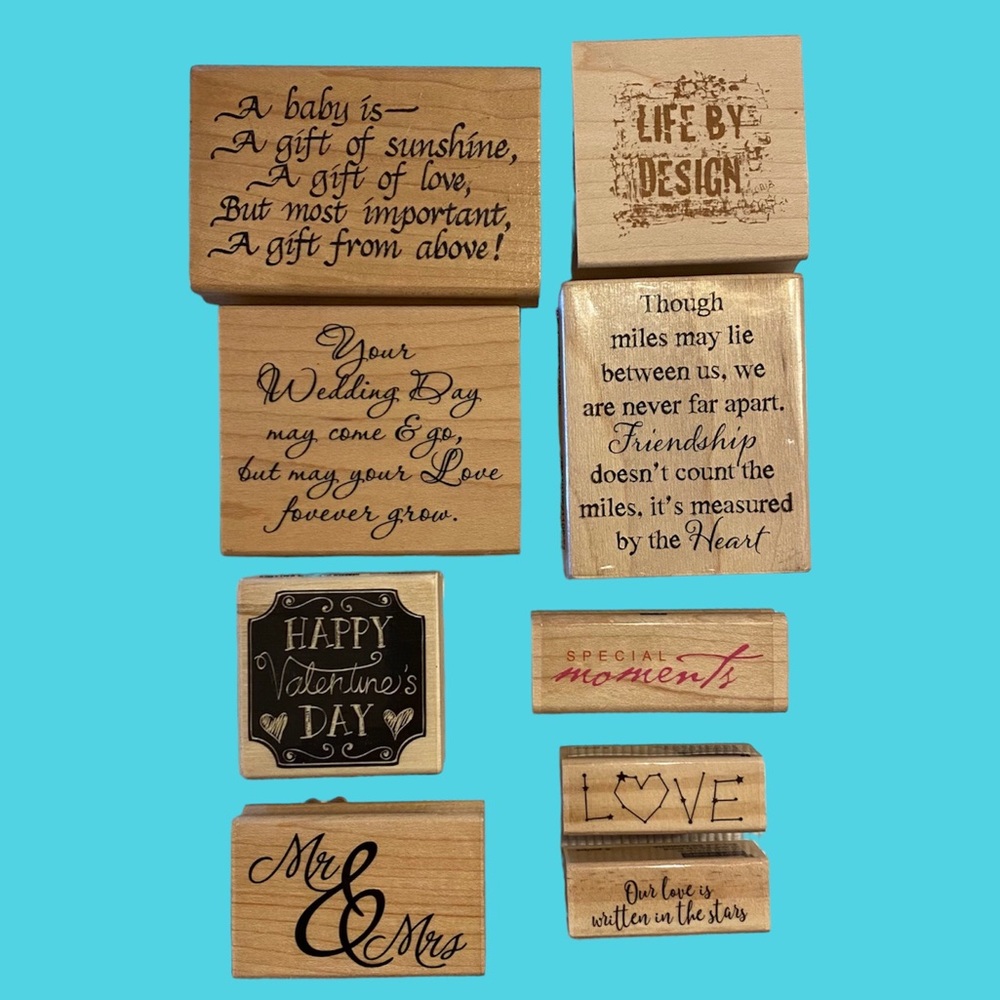 A baby is—
A gift of sunshine,
A gift of love,
But most important,
A gift from above!
LIFE BY
DESIGN
Your
Wedding Day
may come & go,
but may your Love
forever grow.
Though
miles may lie
between us, we
are never far apart.
Friendship
doesn't count the
miles, it's measured
by the Heart
HAPPY
Valentine's
DAY
SPECIAL
moments
LOVE
Our love is
written in the stars
Mr
&
Mrs